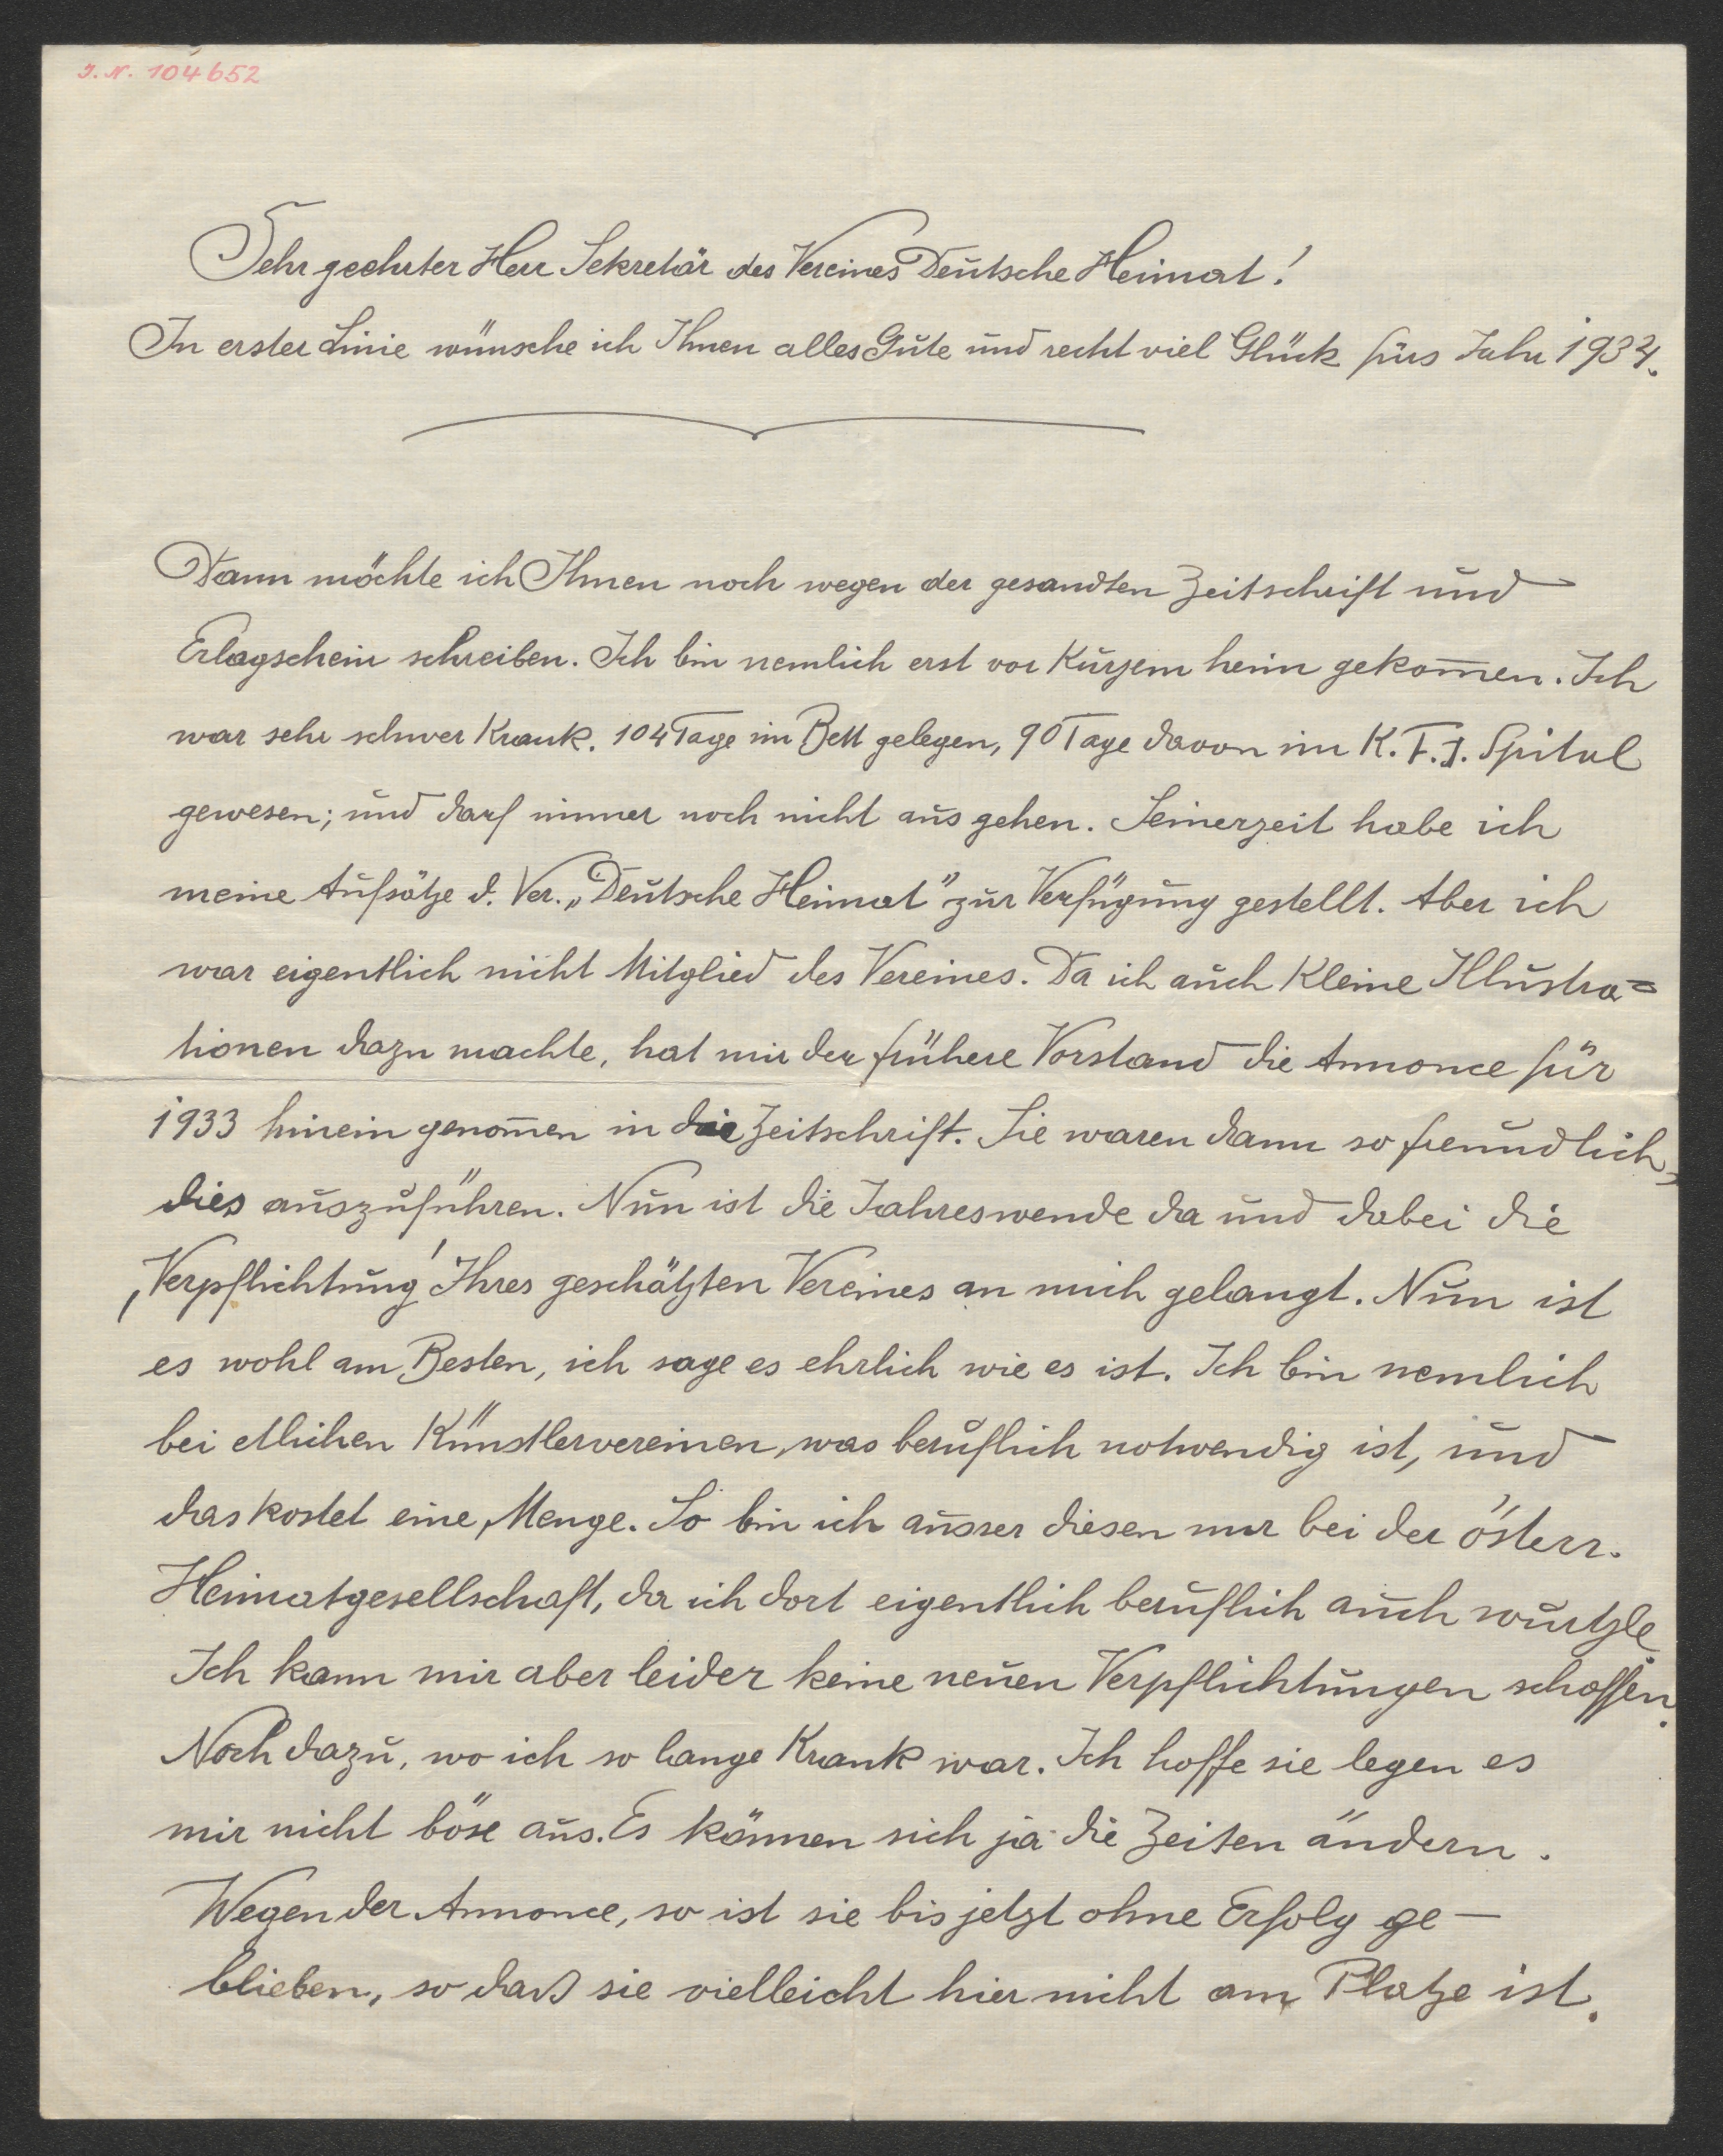 J. N. 104652
Sehr geehrter Herr Sekretär des Vereines Deutsche Heimat!
In erster Linie wünsche ich Ihnen alles Gute und recht viel Glück fürs Jahr 1934.
Dann möchte ich Ihnen noch wegen der gesandten Zeitschrift und
Erlagschein schreiben. Ich bin nemlich erst vor Kurzem heim gekom̅en. Ich
war sehr schwer Krank. 104 Tage im Bett gelegen, 90 Tage davon im K. F. J. Spital
gewesen; und darf immer noch nicht aus gehen. Seinerzeit habe ich
meine Aufsätze d. Ver. „Deutsche Heimat" zur Verfügung gestellt. Aber ich
war eigentlich nicht Mitglied des Vereines. Da ich auch Kleine Illustra=
tionen dazu machte, hat mir der frühere Vorstand die Annonce für
1933 hinein genom̅en in die Zeitschrift. Sie waren dann so freundlich,
dies auszuführen. Nun ist die Jahreswende da und dabei die
‚Verpflichtung' Ihres geschätzten Vereines an mich gelangt. Nun ist
es wohl am Besten, ich sage es ehrlich wie es ist. Ich bin nemlich
bei etlichen Künstlervereinen, was beruflich notwendig ist, und
das kostet eine Menge. So bin ich ausser diesen nur bei der österr.
Heimatgesellschaft, da ich dort eigentlich beruflich auch wurtzle
Ich kann mir aber leider keine neuen Verpflichtungen schaffen.
Noch dazu, wo ich so lange Krank war. Ich hoffe sie legen es
mir nicht böse aus. Es können sich ja die Zeiten ändern.
Wegen der Annonce, so ist sie bis jetzt ohne Erfolg ge—
blieben, so daß sie vielleicht hier nicht am Platze ist.